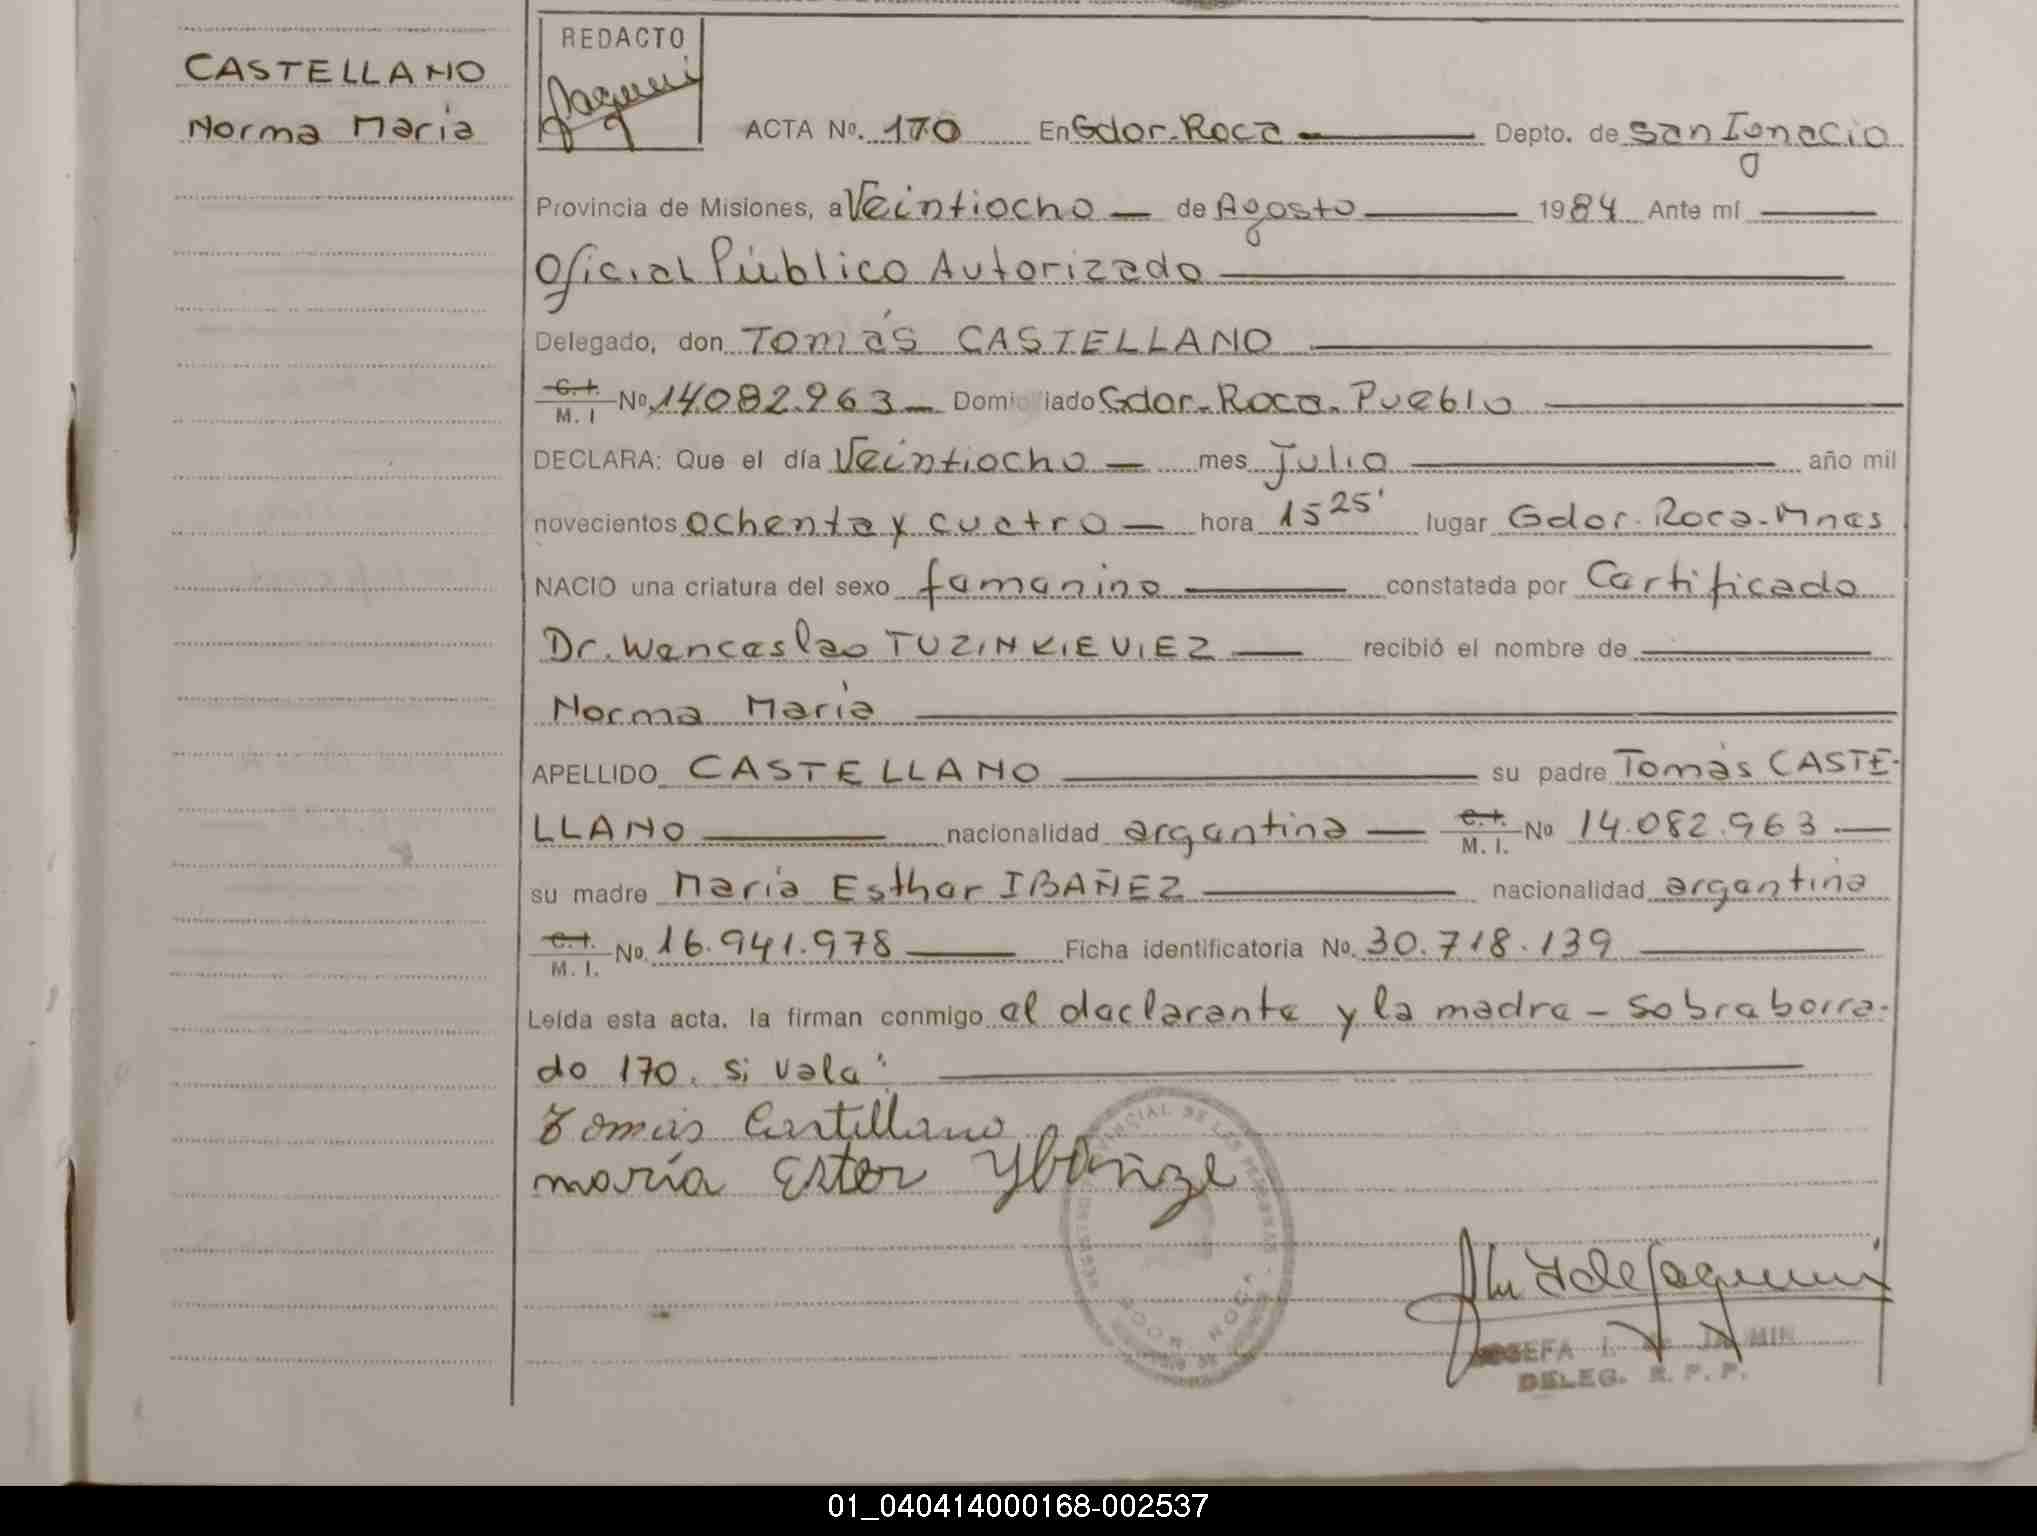 CASTELLANO
Norma María
REDACTO
ACTA No. 170 En Gdor. Roca Depto. de San Ignacio
Provincia de Misiones, a Veintiocho de Agosto 1984 Ante mí
Oficial Público Autorizado
Delegado, don Tomás CASTELLANO
C.I. M.I No 14.082.963 Domiciliado Gdor. Roca. Pueblo
DECLARA: Que el día Veintiocho mes Julio año mil
novecientos ochenta y cuatro hora 15 25' lugar Gdor. Roca-Mnes
NACIO una criatura del sexo femenino constatada por Certificado
Dr. Wenceslao TUZINKIEVIEZ recibió el nombre de
Norma María
APELLIDO CASTELLANO su padre Tomás CASTE-
LLANO nacionalidad argentina C.I. M.I. No 14.082.963
su madre María Esther IBAÑEZ nacionalidad argentina
C.I. M.I. No. 16.941.978 Ficha identificatoria No. 30.718.139
Leída esta acta, la firman conmigo el declarante y la madre - Sobreborra-
do 170. si vale:
Tomás Castellano
maría Ester Ybañze
DELEG. R. P. P.
01_040414000168-002537